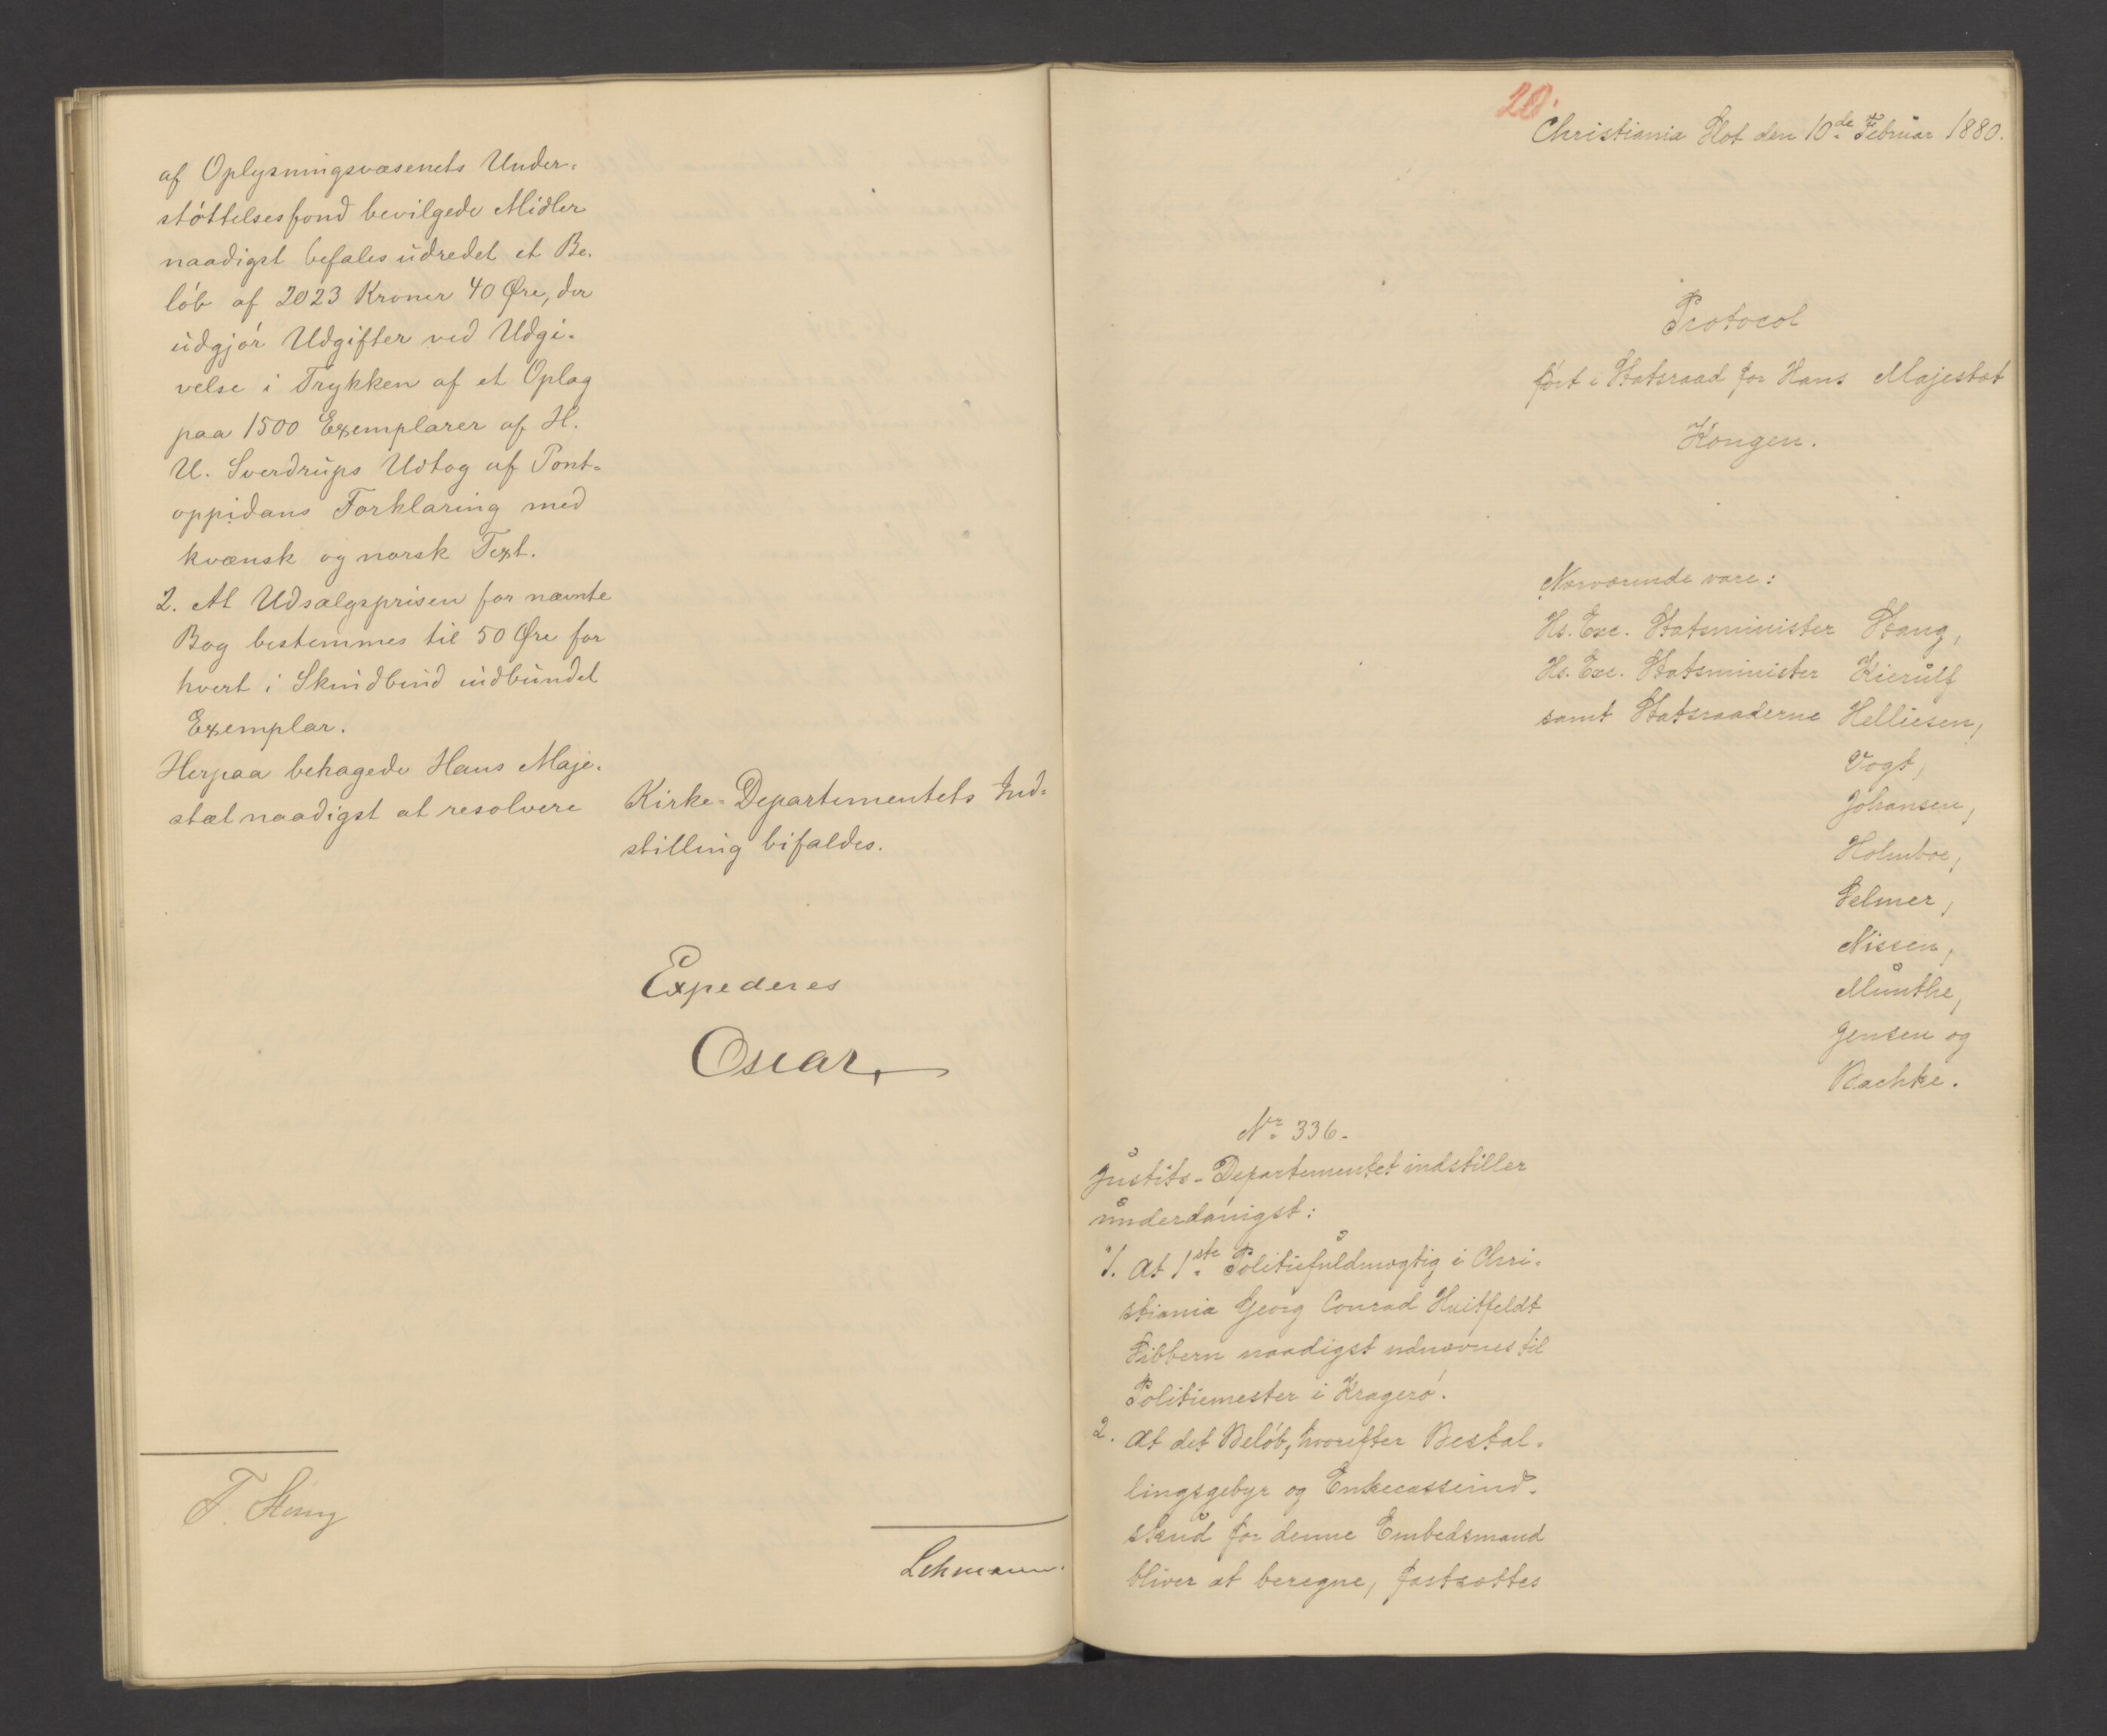 af Oplysningsvæsenets Under-
støttelsesfond bevilgede Midler
naadigst befales udredet et Be-
løb af 2023 Kroner 40 Øre, der
udgjør Udgifter ved Udgi-
velse i Trykken af et Oplag
paa 1500 Exemplarer af H.
U. Sverdrups Udtog af Pont-
oppidans Forklaring med
kvænsk og norsk Text.
2. At Udsalgsprisen for nævnte
Bog bestemmes til 50 Øre for
hvert i Skindbind indbundet
Exemplar.
Herpaa behagede Hans Maje-
stæt naadigst at resolvere
Kirke-Departementets Ind-
stilling bifaldes.
Expederes
Oscar
F. Stang
Lehmann.
20.
Christiania Slot den 10de Februar 1880.
Protocol
ført i Statsraad for Hans Majestæt
Kongen.
Nærværende vare:
Hs. Exc. Statsminister Stang,
Hs. Exc. Statsminister Kierulf
samt Statsraaderne Helliesen,
Vogt,
Johansen,
Holmboe,
Selmer,
Nissen,
Munthe,
Jensen og
Bachke.
Nr. 336.
Justits-Departementet indstiller
underdanigst:
1. At 1ste Politiefuldmægtig i Chri-
stiania Georg Conrad Huitfeldt
Sibbern naadigst udnævnes til
Politiemester i Kragerø.
2. At det Beløb, hvorefter Bestal-
lingsgebyr og Enkecasseind-
skud for denne Embedsmand
bliver at beregne, fastsættes